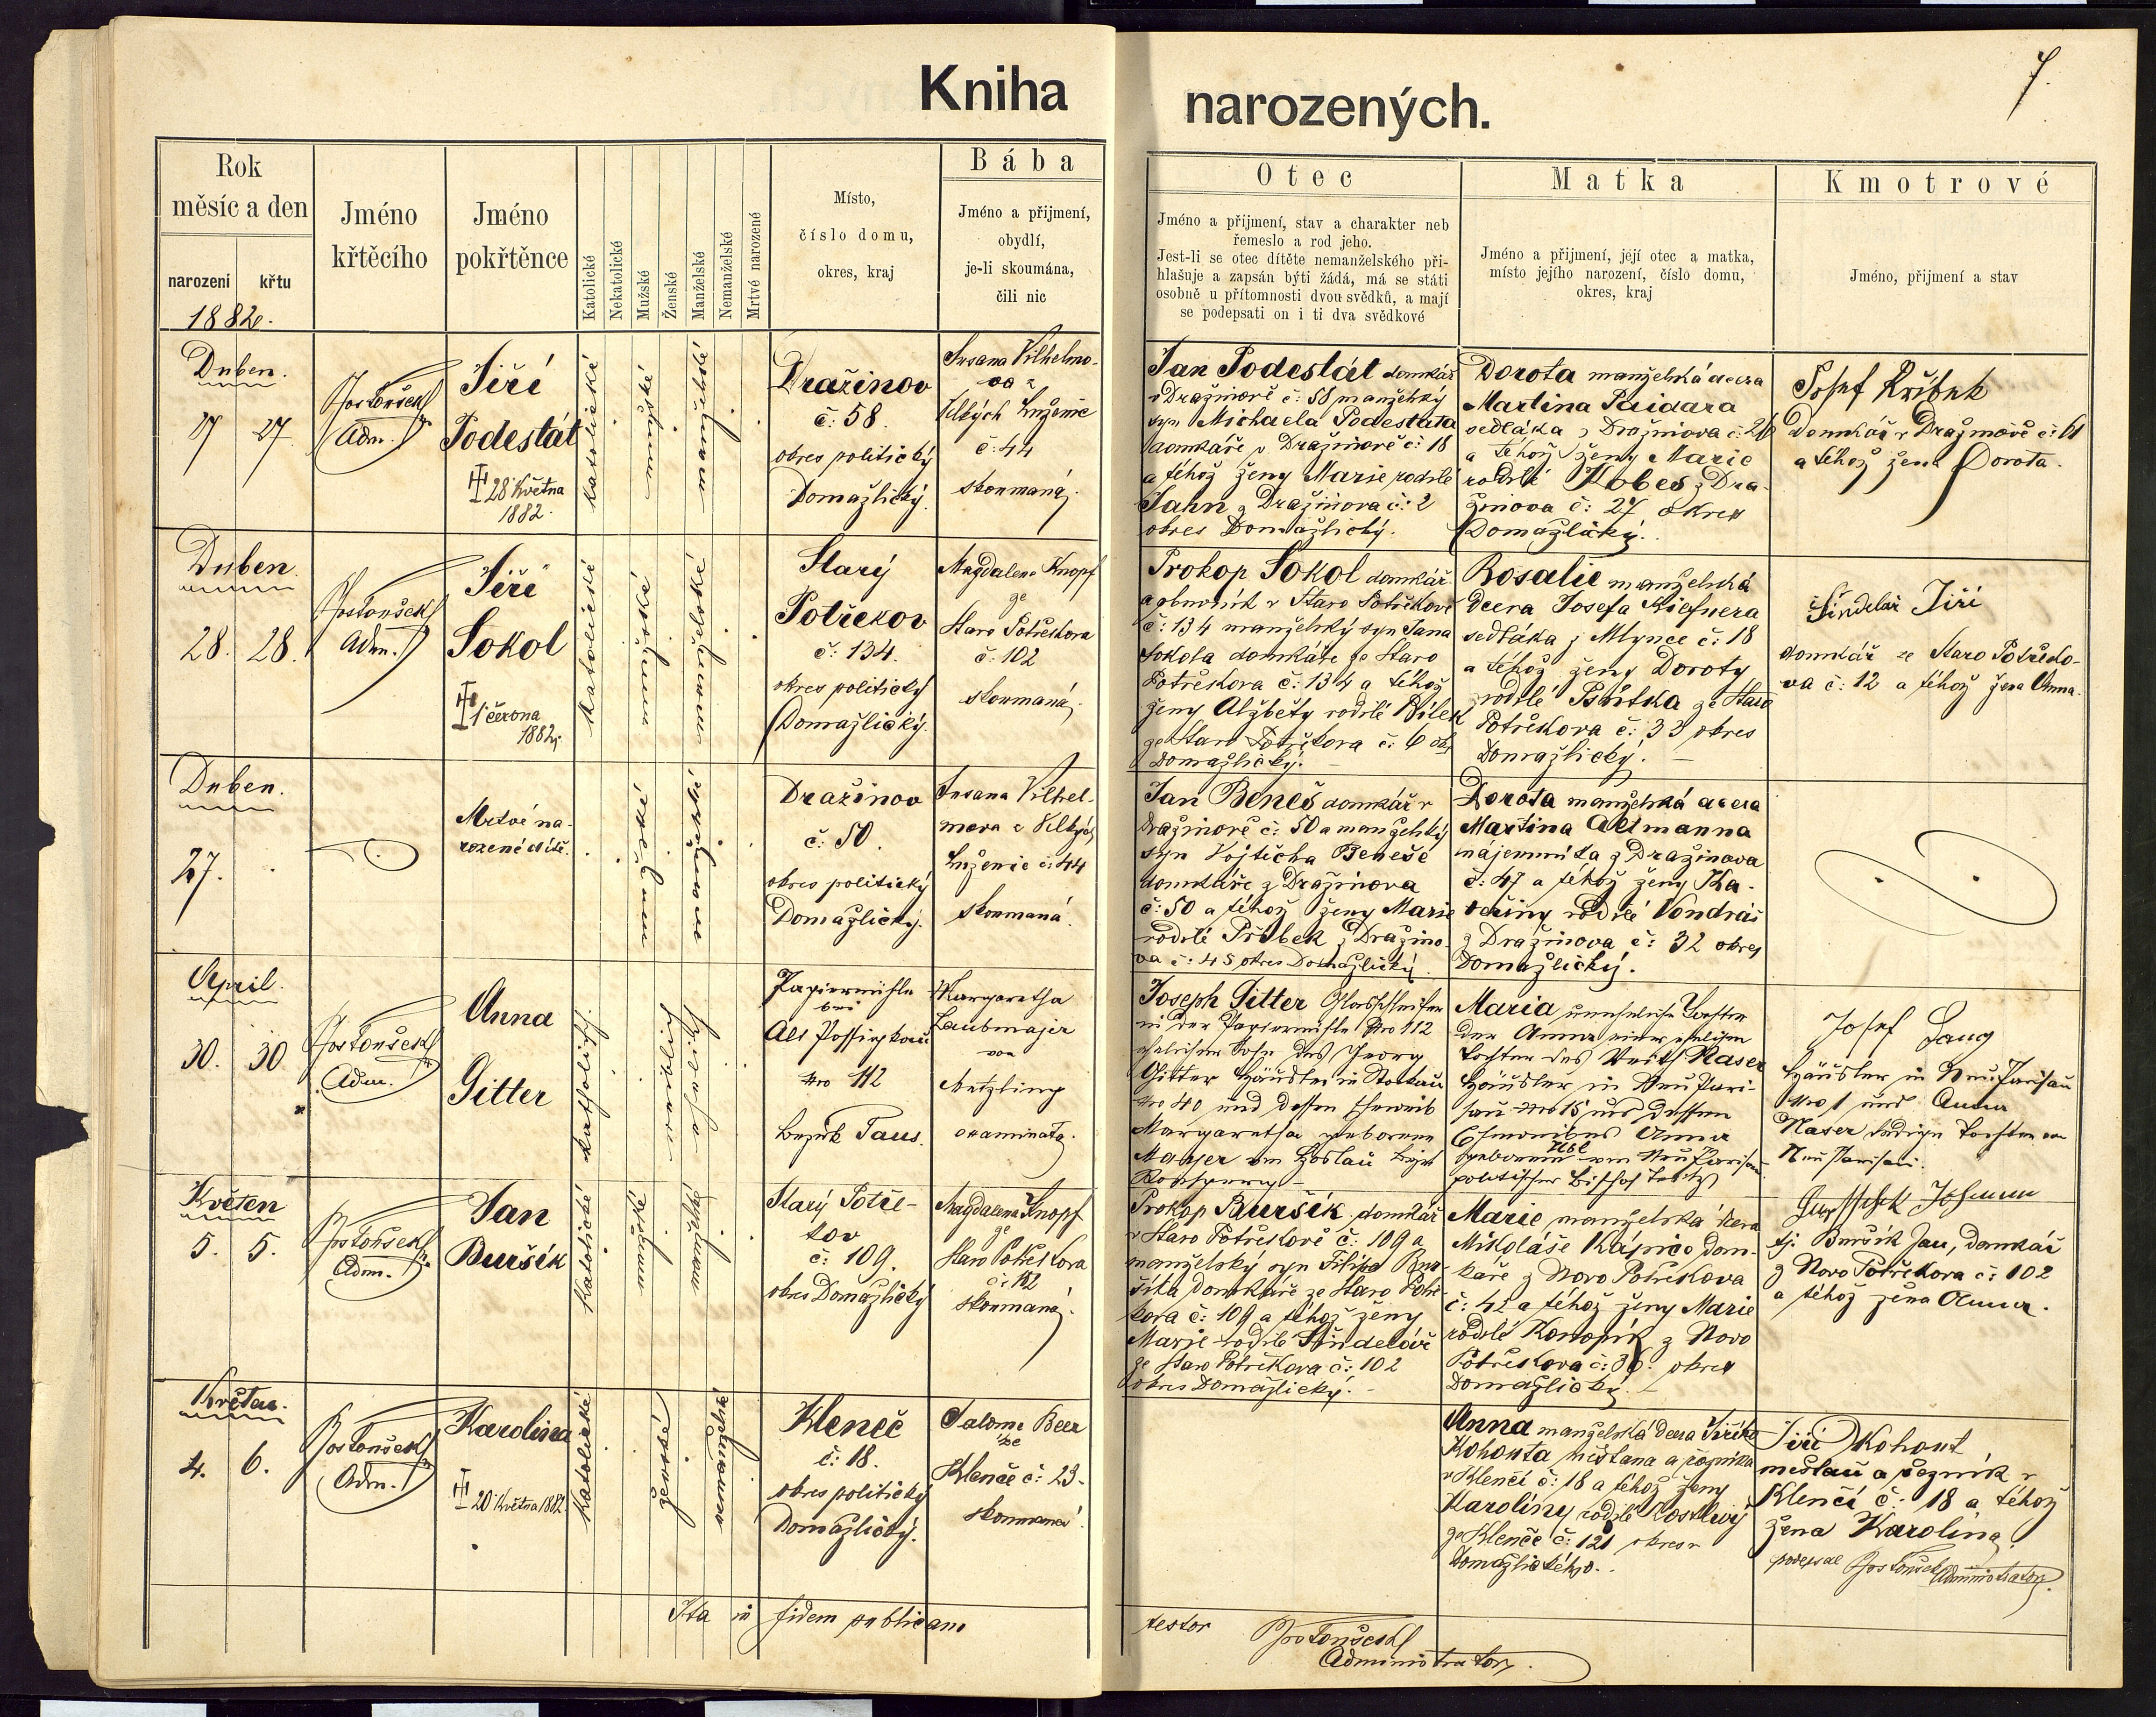 Kniha
narozených.
7.
Rok
měsíc a den
narození
křtu
1882.
Jméno
křtěcího
Jméno
pokřtěnce
Katolické
Nekatolické
Mužské
Ženské
Manželské
Nemanželské
Mrtvé narozené
Místo,
číslo domu,
okres, kraj
Bába
Jméno a přijmení,
obydlí,
je-li skoumána,
čili nic
Otec
Jméno a přijmení, stav a charakter neb
řemeslo a rod jeho.
Jest-li se otec dítěte nemanželského při-
hlašuje a zapsán býti žádá, má se státi
osobně u přítomnosti dvou svědků, a mají
se podepsati on i ti dva svědkové
Matka
Jméno a přijmení, její otec a matka,
místo jejího narození, číslo domu,
okres, kraj
Kmotrové
Jméno, přijmení a stav
Duben.
27
Adm.
Jiří
Podestát
28 Května
1882.
katolické
mužské
manželské
Dražinov
č: 58.
okres politický
Domažlický.
Susana Vilhelmo-
va z
Velkých Luženic
č: 44
skoumaná.
Jan Podestát domkář
v Dražinově č: 58 manželský
syn Michaela Podestáta
domkáře v Dražinově č: 18
a téhož ženy Marie rodilé
Jahn z Dražinova č: 2
okres Domažlický.
Dorota manželská dcera
Martina Paidara
sedláka z Dražinova č: 26
a téhož ženy Marie
rodilé Kobes z Dra-
žinova č: 27 okres
Domažlický.
Josef
domkář v Dražinově č: 61
a téhož žena Dorota.
Duben
28. 28.
Adm.
Jiří
Sokol
1 června
1882
katolické
mužské
manželské
Starý
Potřekov
č: 134.
okres politický
Domažlický.
Magdalena Knopf
ze
Staro Potřekova
č: 102
skoumaná.
Prokop Sokol domkář
a obuvník v Staro Potřekově
č: 134 manželský syn Jana
Sokola domkáře ze Staro
Potřekova č: 134 a téhož
ženy Alžběty rodilé Bílek
ze Staro Potřekova č: 6
Domažlický.
Rosalie manželská
dcera Josefa
sedláka z Mlynce č: 18
a téhož ženy Doroty
rodilé ze Staro
Potřekova č: 33 okres
Domažlický.
Šindelář Jiří
domkář ze Staro Potřeko-
va č: 12 a téhož žena Anna.
Duben.
27.
Mrtvé na-
rozené dítě.
mužské
manželské
Dražinov
č: 50.
okres politický
Domažlický.
Susana Vilhel-
mova z Velkých
Luženic č: 44
skoumaná.
Jan Beneš domkář v
Dražinově č: 50 a manželský
syn Vojtěcha Beneše
domkáře z Dražinova
č: 50 a téhož ženy Marie
rodilé Přibek z Dražino-
va č: 45 okres Domažlický.
Dorota manželská dcera
Martina Altmanna
nájemníka z Dražinova
č: 47 a téhož ženy Ka-
teřiny rodilé Vondráš
z Dražinova č: 32 okres
Domažlický.
April.
30. 30
Adm.
Anna
Gitter
katholisch.
weiblich
Papiermühle
bei
Alt Possigkau
Nro 112
Bezirk Taus.
Margaretha
Laubmajer
von
Metzling
examinata.
Joseph Gitter Glasschleifer
in der Papiermühle Nro 112
ehelicher Sohn des Georg
Gitter Häusler in Stockau
Nro 40 und dessen Eheweib
Margaretha geborene
Majer von Hostau Bezirk
Maria uneheliche Tochter
der Anna einer ehelichen
Tochter des Veith Naser
Häusler in Neu Pari-
sau Nro 15 und dessen
Eheweibes Anna
geborene von Neu Parisau
politischer
Josef Lang
Häusler in Neu Parisau
Nro 1 und Anna
Naser ledige Tochter von
Neu Parisau.
Květen
5. 5.
Adm.
Jan
Buršík
katolické
mužské
manželské
Starý Potře-
kov
č: 109.
okres Domažlický
Magdalena Knopf
ze
Staro Potřekova
č: 102
skoumaná.
Prokop Buršík domkář
v Staro Potřekově č: 109 a
manželský syn Filipa Bur-
šíka domkáře ze Staro Potře-
kova č: 109 a téhož ženy
Marie rodilé Šindelář
ze Staro Potřekova č: 102
okres Domažlický.
Marie manželská dcera
Mikoláše dom-
káře z Novo Potřekova
č: 42 a téhož ženy Marie
rodilé Konopík z Novo
Potřekova č: 36. okres
Domažlický.
Johann
tj. Buršík Jan, domkář
z Novo Potřekova č: 102
a téhož žena Anna.
Květen.
4. 6.
Adm.
Karolina
20 Května 1882
katolické
ženské
nemanželské
Kleneč
č: 18.
okres politický
Domažlický.
Salome Beer
ze
Klenče č: 23.
skoumaná.
Anna manželská dcera Jiřího
Kohouta měšťana a řezníka
v Klenčí č: 18 a téhož ženy
Karolíny rodilé Kostlivý
ze Klenče č: 121 okresu
Domažlického.
Jiří Kohout
měšťan a řezník v
Klenčí č: 18 a téhož
žena Karolina
podepsal Administrator.
Ita in fidem publicam
testor
Administrator.